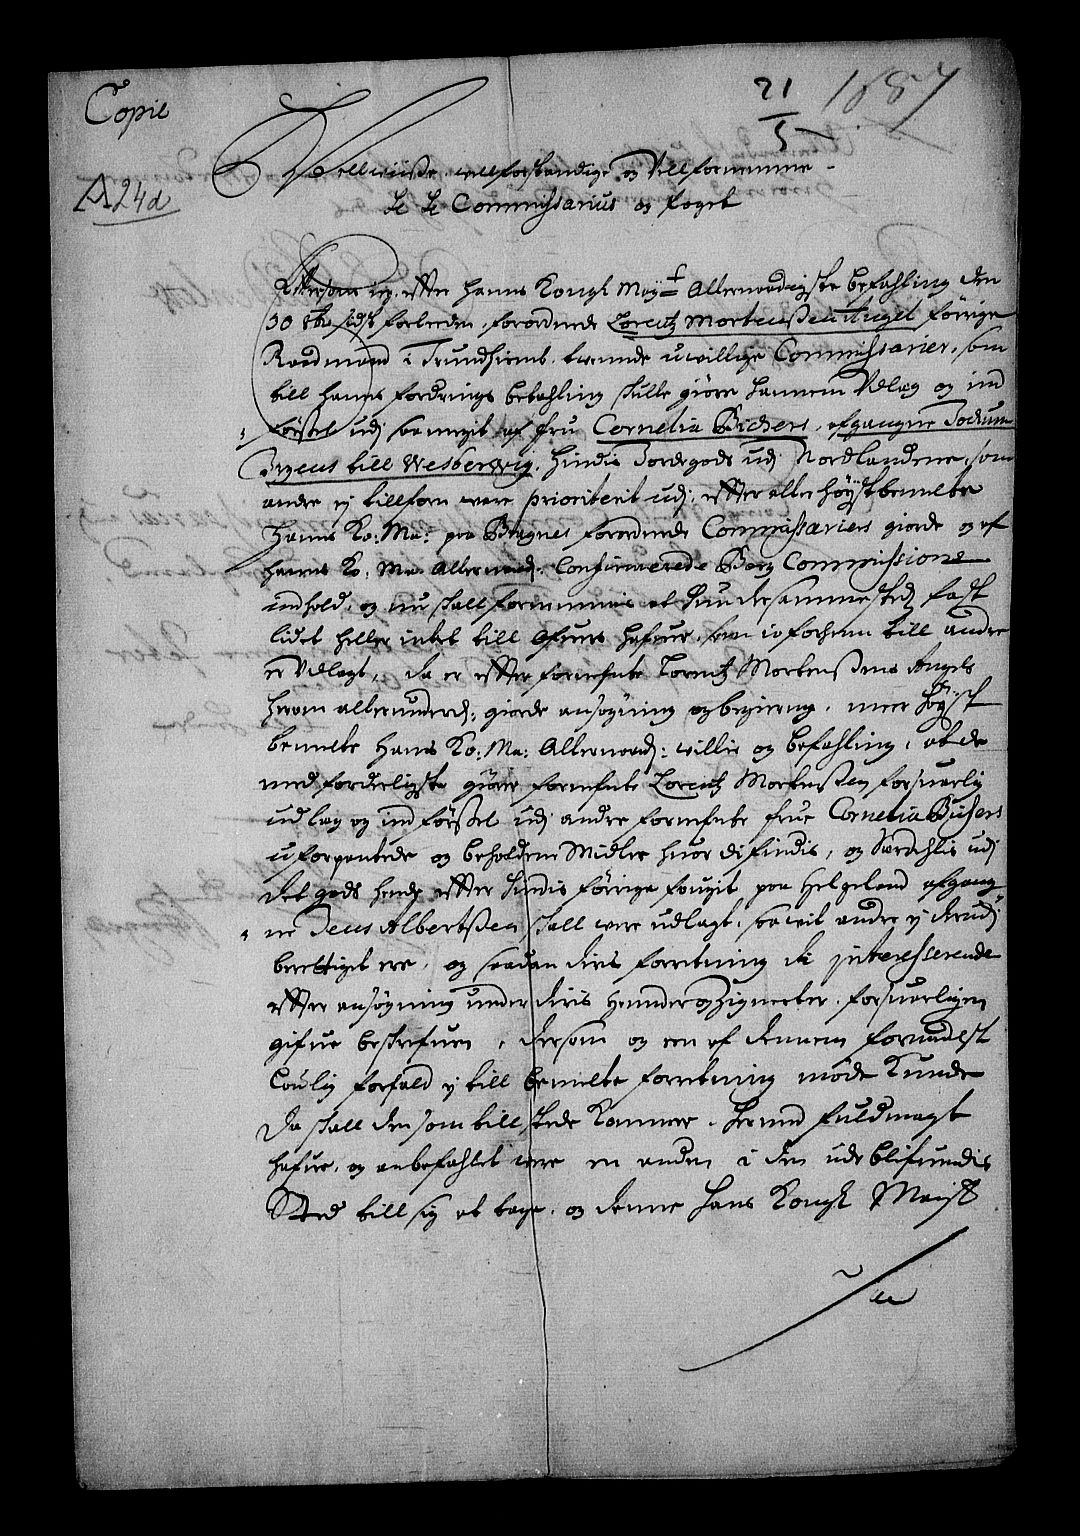 Copie
21/5 1687
A 24d
Velluiisse, vellforstandige og Vellfornemme
Hr Hr Commissarius og foget
Eftersom ieg efter hanns Kongl May:tt Allernaadigste befahling den
30 8br sidst forleden, forordnede Lorentz Mortenssen Angel forrige
Raadmand i Trundhiemb, tuende uvillige Commissarier, som
till hans fordrings betahling skulle giøre hannem Udlæg og ind
førsel udj saa meget af fru Cornelia Bickers, afgangne Jochum
Irgens till Westerwig, hindis Jordegods udj Nordlandene, som
andre ej tillforn vare prioriterit udj, efter aller høystbemelte
Hanns Ko: Ma: paa Bragnes forordnede Commissariers giorde og af
hanns Ko: Ma: Allernaad: Confirmerede Berg Commissions
indhold, og nu skall fornemmis at udj samme sted fast
lidet heller intet till Ofuers hafuer, som io forhenn till andre
er Udlagt, da er efter fornefnte Lorentz Mortenssens Angels
herom allerunderd: giorde ansøgning og begiering, meer høgst
bemelte hans Ko: Ma: Allernaad: willie og befahling, at de
med forderligste giører fornefnte Lorentz Mortenssen forsuarlig
udlæg og indførssel udj andre fornefnte frue Cornelia Bickers
uforpantede og beholdene Midler huor di findis, og Særdehlis udj
det gods hende efter hindis forrige fougit paa Helgeland afgang
ne Jens Albertssen skall were udlagt, saa wit andre ej derudj
berettiget ere, og saadan deris forretning de interesserende
efter ansøgning under deris hender og zigneter forsuarligen
gifue beskrefuen, dersom og een af dennem formedelst
Loulig forfald ej till bemelte forretning møde Kunde
da skall den som till stede Kommer, hermed fuldmagt
hafue, og anbefahlet were en anden i den udeblifuendis
Sted till sig at tage, og denne hans Kongl Mayst